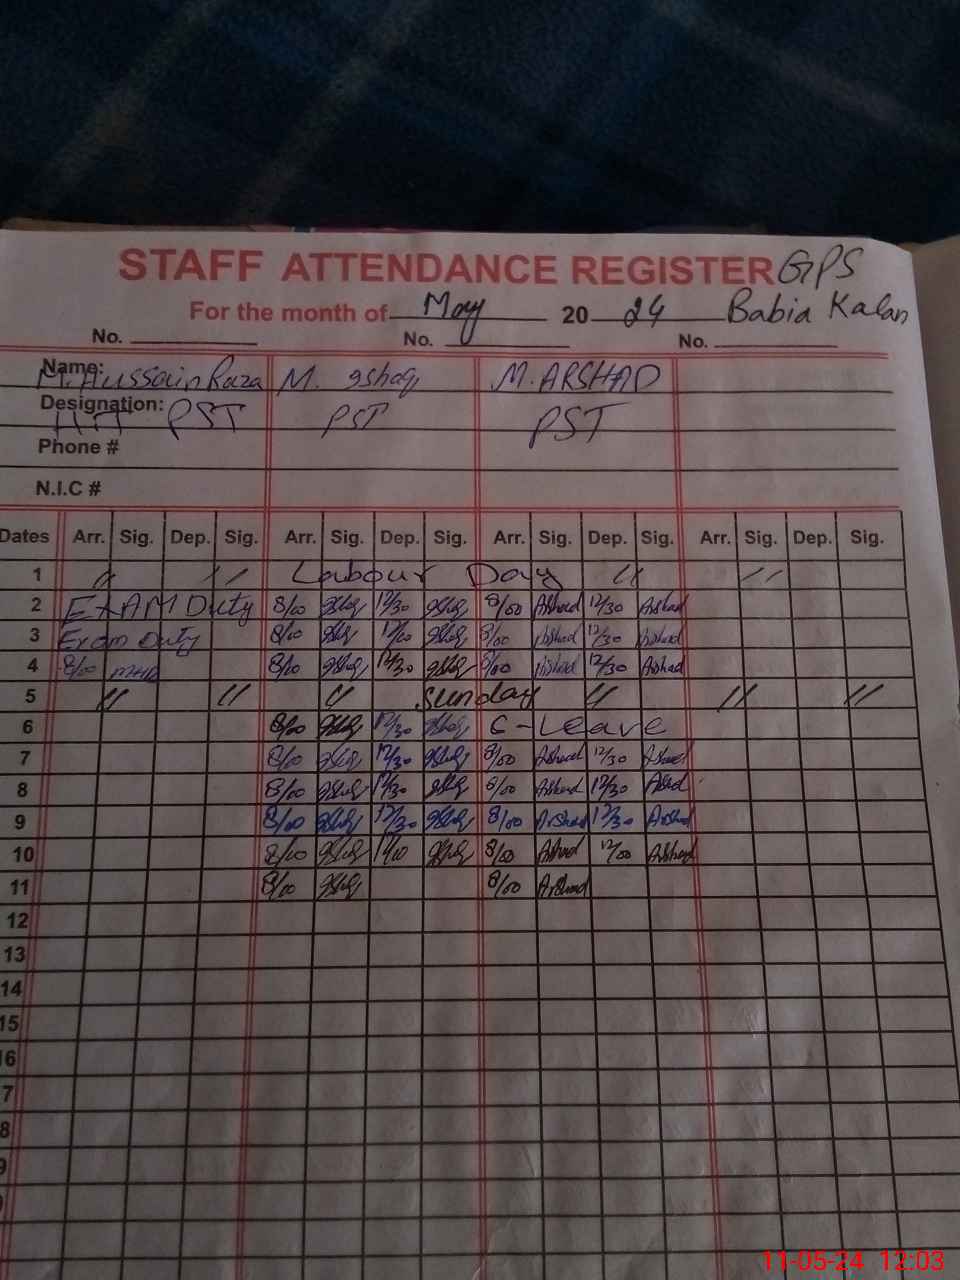 STAFF ATTENDANCE REGISTER GPS
For the month of May 2024 Babia Kalan
No. No. No.
Name: M. Hussain Raza M. Ishaq M. ARSHAD
Designation: PST PST PST
Phone #
N.I.C #
Dates Arr. Sig. Dep. Sig. Arr. Sig. Dep. Sig. Arr. Sig. Dep. Sig. Arr. Sig. Dep. Sig.
1 " " Labour Day " "
2 EXAM Duty 8/00 12/30 8/00 Arshad 12/30 Arshad
3 Exam Duty 8/00 8/00 Arshad 12/30 Arshad
4 8/00 8/00 12/30 8/00 Arshad 12/30 Arshad
5 " " " Sunday " " "
6 8/00 12/30 C-Leave
7 8/00 12/30 8/00 Arshad 12/30 Arshad
8 8/00 12/30 8/00 Arshad 12/30 Arshad
9 8/00 12/30 8/00 Arshad 12/30 Arshad
10 8/00 8/00 Arshad 12/00 Arshad
11 8/00 8/00 Arshad
12
13
14
15
16
7
8
9
11-05-24 12:03